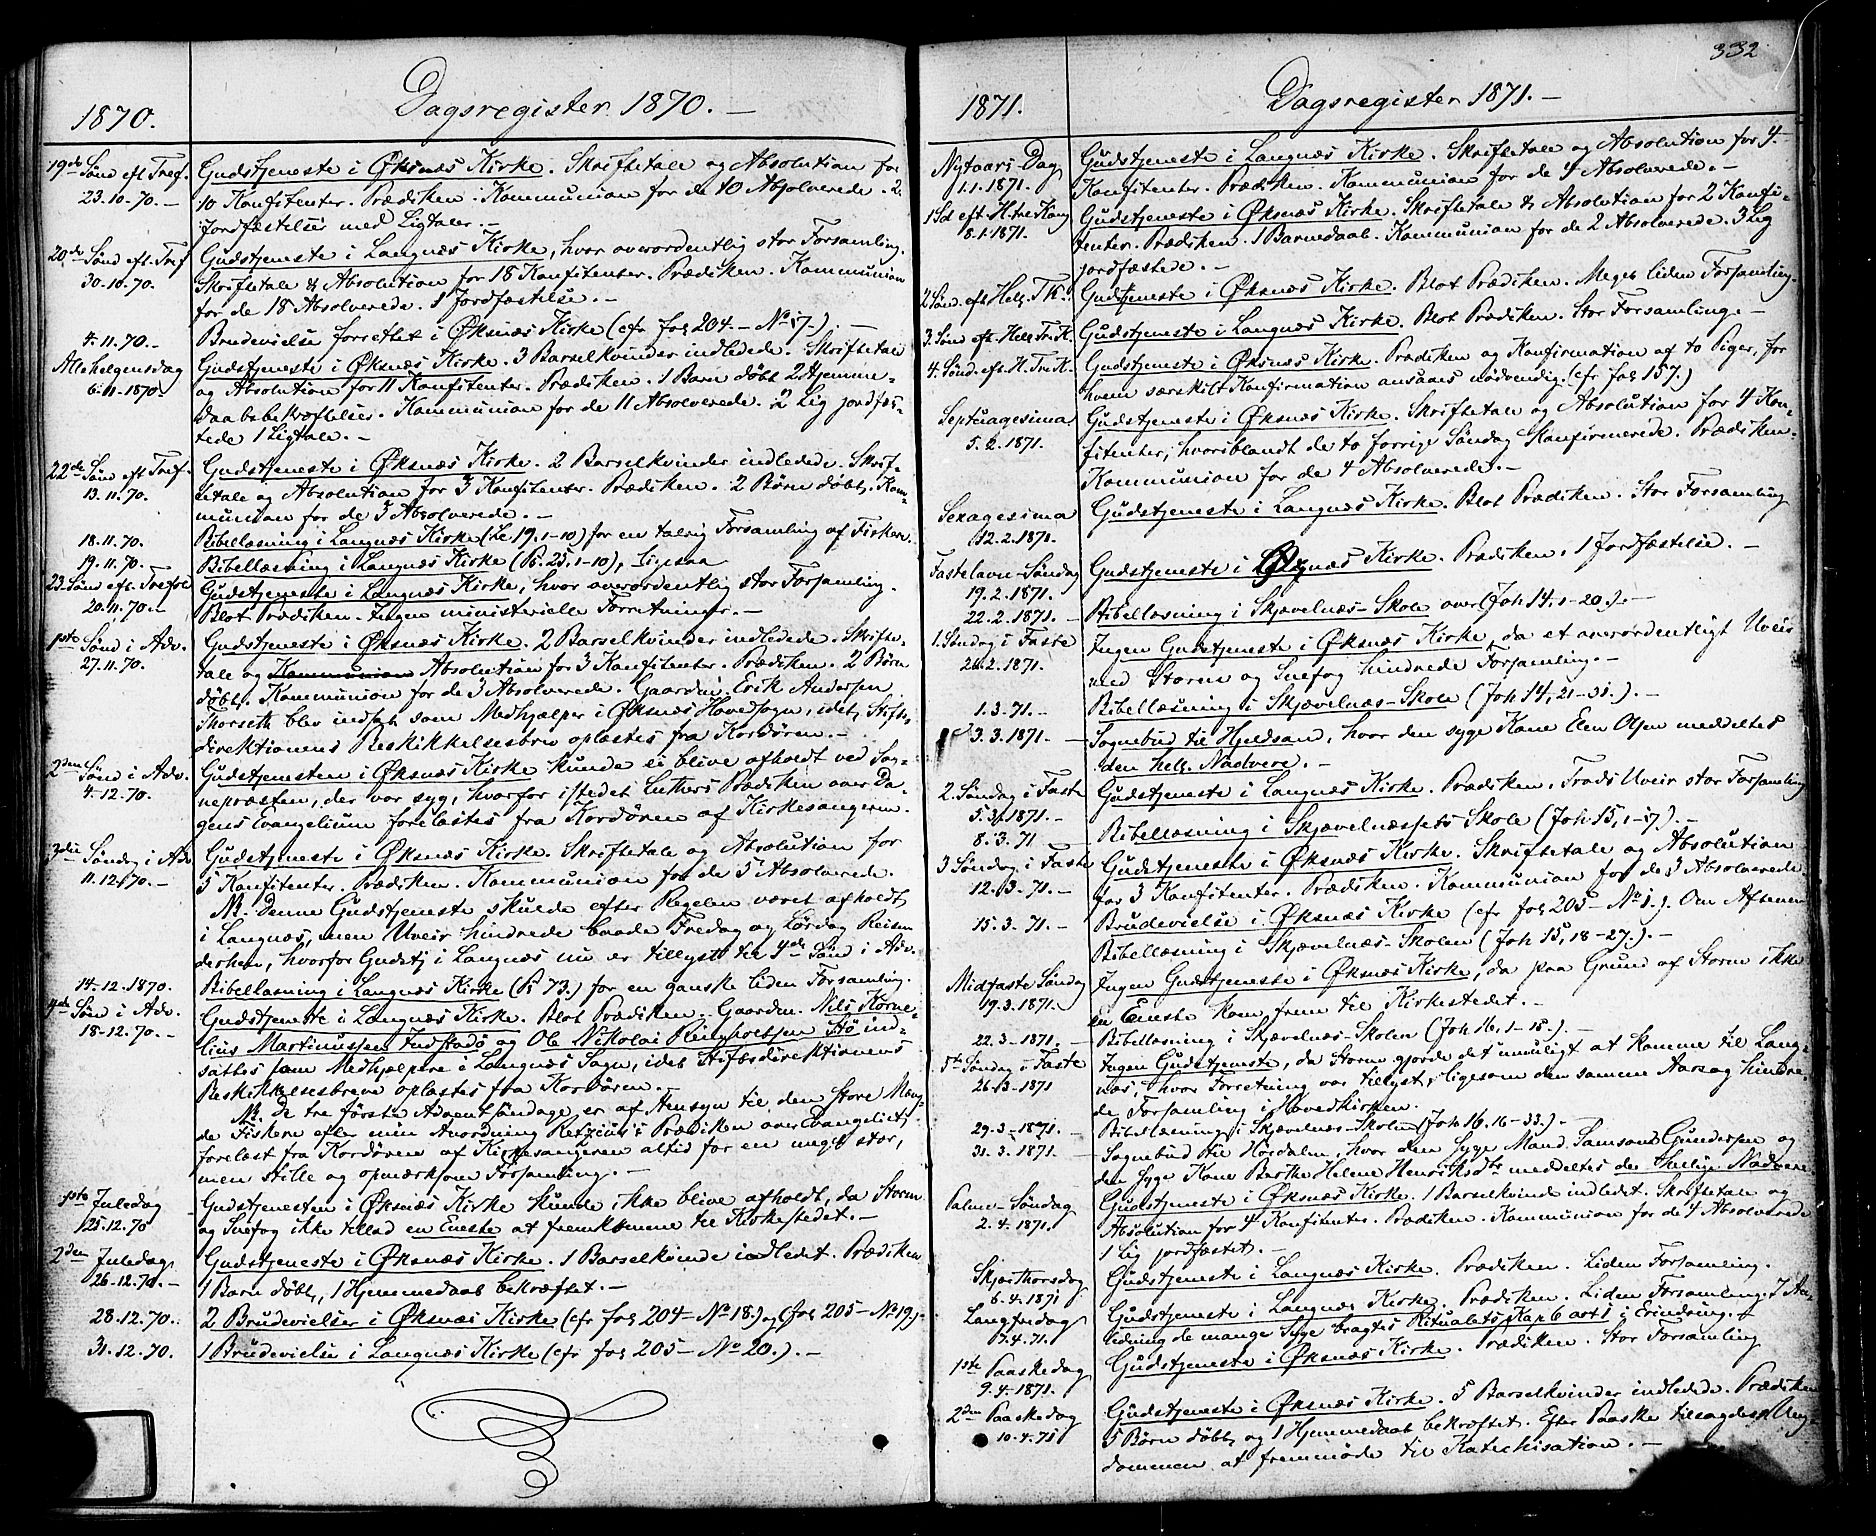 332
1870.
Dagsregister 1870.—
19de Sønd eft Tref.
23.10.70.—
Gudstjeneste i Øksnæs Kirke. Skriftetale og Absolution for
10 Konfitenter. Prædiken. Kommunion for de 10 Absolverede. 2
Jordfæstelser med Ligtaler.—
20de Sønd eft. Tref
30.10.70.
Gudstjeneste i Langnæs Kirke, hvor overordentlig stor Forsamling.
Skriftetale & Absolution for 18 Konfitenter. Prædiken. Kommunion
for de 18 Absolverede. 1 Jordfæstelse.—
4.11.70.—
Brudevielse forrettet i Øksnæs Kirke (cfr fol 204.— No 17.).—
Allehelgensdag
6.11.1870.
Gudstjeneste i Øksnæs Kirke. 3 Barselkvinder indledede. Skriftetale
og Absolution for 11 Konfitenter. Prædiken. 1 Barn døbt 2 Hjemme-
daabsbekræftelser. Kommunion for de 11 Absolverede. 2 Lig jordfæs-
tede 1 Ligtale.—
22de Sønd eft Tref.
13.11.70.
Gudstjeneste i Øksnæs Kirke. 2 Barselkvinder indledede. Skrif-
tetale og Absolution for 3 Konfitenter. Prædiken. 2 Børn døbt. Kom-
munion for de 3 Absolverede.—
18.11.70.
Bibellæsning i Langnæs Kirke (Lc 19, 1-10) for en talrig Forsamling af Fiskere.
19.11.70.
Bibellæsning i Langnæs Kirke (Ps. 25, 1-10), Ligesaa
23. Sønd eft. Trefol
20.11.70.—
Gudstjeneste i Langnæs Kirke, hvor overordentlig stor Forsamling.
Blot Prædiken. Ingen ministerielle Forretninger.—
1ste Sønd i Adv.
27.11.70.
Gudstjeneste i Øksnæs Kirke. 2 Barselkvinder indledede. Skrifte-
tale og Kommunion Absolution for 3 Konfitenter. Prædiken. 2 Børn
døbt. Kommunion for de 3 Absolverede. Gaardm. Erik Andersen
Skorseth blev indsat som Medhjælper i Øksnæs Hovedsogn, idet Stifts-
direktionens Beskikkelsesbrev oplæstes fra Kordøren.—
2den Sønd i Adv.
4.12.70.
Gudstjenesten i Øksnæs Kirke kunde ei blive afholdt ved Sog-
nepræsten, der var syg, hvorfor istedet Luthers Prædiken over Da-
gens Evangelium forelæstes fra Kordøren af Kirkesangeren.
3die Søndag i Adv
11.12.70.—
Gudstjeneste i Øksnæs Kirke. Skriftetale og Absolution for
5 Konfitenter. Prædiken. Kommunion for de 5 Absolverede.
NB. Denne Gudstjeneste skulde efter Regelen været afholdt
i Langnæs, men Uveir hindrede baade Fredag og Lørdag Reisen
derhen, hvorfor Gudstj i Langnæs nu er tillyst til 4de Sønd i Adv.
14-12.1870.
Bibellæsning i Langnæs Kirke (Ps 73.) for en ganske liden Forsamling.
4de Sønd i Adv.
18-12.70.—
Gudstjeneste i Langnæs Kirke. Blot Prædiken. Gaardm. Nils Korne-
lius Martinussen Indstadø og Ole Nikolai Reinholtsen Stø ind-
sattes som Medhjælpere i Langnæs Sogn, idet Stiftsdirektionens
Beskikkelsesbreve oplæstes fra Kordøren.—
NB. De tre første Adventsøndage er af Hensyn til den store Mæng-
de Fiskere efter min Anordning Retzius's Prædiken over Evangeliet
forelæst fra Kordøren af Kirkesangeren altid for en meget stor,
men stille og opmærksom Forsamling.—
1ste Juledag
25.12.70
Gudstjenesten i Øksnæs Kirke kunde ikke blive afholdt, da Storm
og Snefog ikke tillod en Eneste at fremkomme til Kirkestedet.—
2den Juledag
26.12.70.—
Gudstjeneste i Øksnæs Kirke. 1 Barselkvinde indledet. Prædiken.
1 Barn døbt, 1 Hjemmedaab bekræftet.—
28.12.70.
2 Brudevielser i Øksnæs Kirke (cfr fol 204— No 18.) og (fol 205— No 19.)—
31.12.70.
1 Brudevielse i Langnæs Kirke (cfr fol 205— No 20.).—
1871.
Dagsregister 1871.—
Nytaars Dag
1.1.1871.
Gudstjeneste i Langnæs Kirke. Skriftetale og Absolution for 4
Konfitenter. Prædiken. Kommunion for de 4 Absolverede.—
1 Søt eft. H. tre Kong
8.1.1871.
Gudstjeneste i Øksnæs Kirke. Skriftetale & Absolution for 2 Konfi-
tenter. Prædiken. 1 Barnedaab. Kommunion for de 2 Absolverede. 3 Lig
jordfæstede.—
2 Sønd. eft Hell. T K.
Gudstjeneste i Øksnæs Kirke. Blot Prædiken. Meget liden Forsamling.
3. Sønd eft. Hell Tr. K.
Gudstjeneste i Langnæs Kirke. Blot Prædiken. Stor Forsamling.—
4. Sønd. eft. H. Tre K.
Gudstjeneste i Øksnæs Kirke. Prædiken og Konfirmation af to Piger, for
hvem særskilt Konfirmation ansaaes nødvendig. (cfr fol 157.)
Septuagesima
5.2.1871.
Gudstjeneste i Øksnæs Kirke. Skriftetale og Absolution for 4 Kon-
fitenter, hvoriblandt de to forrige Søndag Konfirmerede. Prædiken.
Kommunion for de 4 Absolverede.—
Sexagesima
12.2.1871.
Gudstjeneste i Langnæs Kirke. Blot Prædiken. Stor Forsamling
Fastelavn-Søndag
19.2.1871.
Gudstjeneste i Øksnæs Kirke. Prædiken. 1 Jordfæstelse.—
22.2.1871.
Bibellæsning i Skjævelnæs-Skole over (Joh 14, 1-20.).—
1. Søndag i Faste
26.2.1871.
Ingen Gudstjeneste i Øksnæs Kirke, da et overordentligt Uveir
med Storm og Snefog hindrede Forsamling.—
1.3.71.—
Bibellæsning i Skjævelnæs-Skole (Joh 14, 21-31.).—
3.3.1871.—
Sognebud til Hjeldsand, hvor den syge Kone Elen Olsen meddeltes
den hell. Nadvere.—
2. Søndag i Faste
5.3.1871.—
Gudstjeneste i Langnæs Kirke. Prædiken. Trods Uveir stor Forsamling
8.3.71
Bibellæsning i Skjævelnæssets Skole (Joh 15, 1-17).—
3 Søndag i Faste
12.3.71.—
Gudstjeneste i Øksnæs Kirke. Skriftetale og Absolution
for 3 Konfitenter. Prædiken. Kommunion for de 3 Absolverede.
15.3.71.—
Brudevielse i Øksnæs Kirke (cfr fol 205— No 1.). Om Aftenen
Bibellæsning i Skjævelnæs-Skolen (Joh 15, 18-27.).—
Midfaste Søndag
19.3.1871.
Ingen Gudstjeneste i Øksnæs Kirke, da paa Grund af Storm ikke
en Eneste kom frem til Kirkestedet.—
22.3-1871.
Bibellæsning i Skjævelnæs-Skolen (Joh 16, 1-15.).—
5te Søndag i Faste
26.3.1871
Ingen Gudstjeneste, da Storm gjorde det umuligt at komme til Lang-
næs, hvor Forretning var tillyst, ligesom den samme Aarsag hindre-
de Forsamling i Hovedkirken.
29.3-1871.
Bibellæsning i Skjævelnæs-Skolen (Joh 16, 16-33.).—
31.3.1871.
Sognebud til Høydalen, hvor den syge Mand Samson Gundersen og
den syge Kone Barthe Helene Henriksdtr meddeltes den hellige Nadvere
Palme-Søndag
2.4.1871.
Gudstjeneste i Øksnæs Kirke. 1 Barselkvinde indledet. Skriftetale og
Absolution for 4 Konfitenter. Prædiken. Kommunion for de 4 Absolverede
1 Lig jordfæstet.—
Skjærthorsdag
6.4.1871
Gudstjeneste i Langnæs Kirke. Prædiken. Liden Forsamling.
Langfredag
7.4.71.
Gudstjeneste i Langnæs Kirke. Prædiken. Liden Forsamling. I An-
ledning de mange Syge bragtes Ritualets Kap 6 art 1 i Erindring.
1ste Paaskedag
9.4.1871.
Gudstjeneste i Øksnæs Kirke. Prædiken. Stor Forsamling
2den Paaskedag
10.4.71
Gudstjeneste i Øksnæs Kirke. 5 Barselkvinder indledede. Prædiken
5 Børn døbt og 1 Hjemmedaab bekræftet. Efter Paaske tilsagdes Ung-
dommen at fremmøde til Katechisation.—